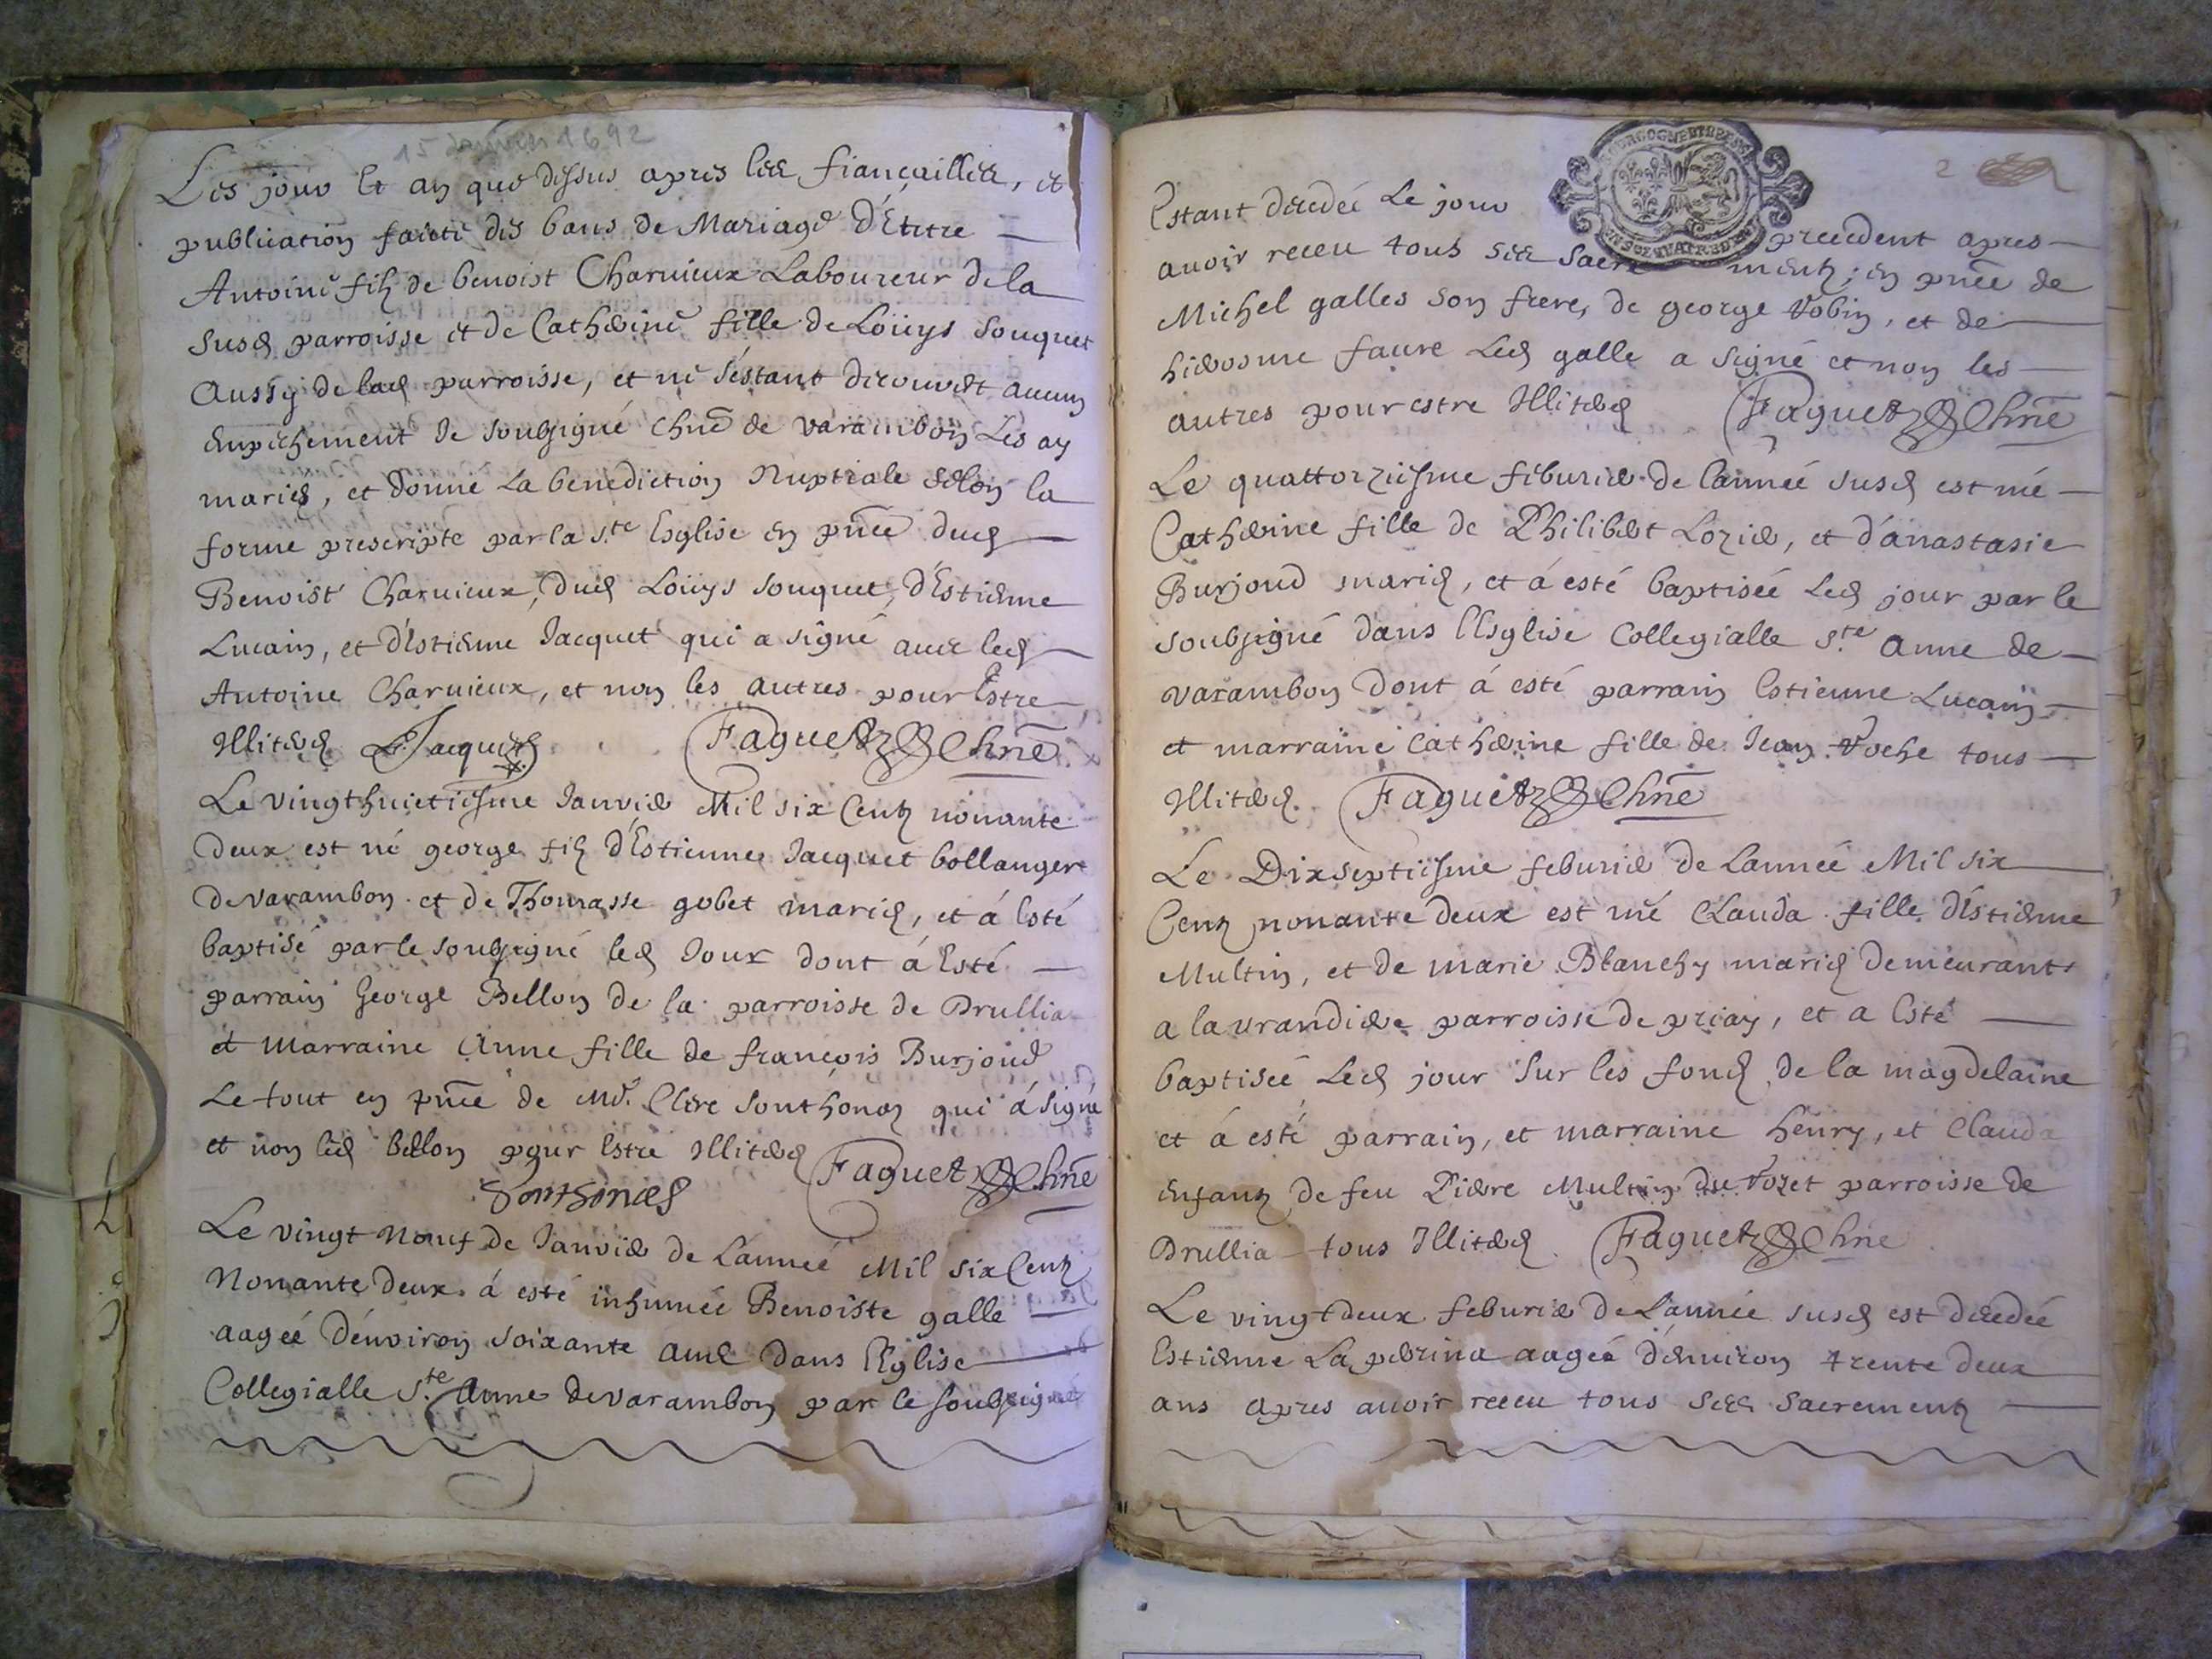 15 Janvier 1692
Les jour et an que dessus apres les fiançailles, et
publication faicte des bans de Mariage d'Entre
Antoine filz de benoist Charuieux Laboureur de la
susd parroisse et de Catherine fille de Loüys Souquet
aussy de lad parroisse, et ne s'estant decouuert aucun
empechement Je soubsigné chne de varambon Les ay
mariés, et donné la benediction Nuptiale selon la
forme prescripte par la S.te Esglise en pnce dud
Benoist Charuieux, dud Loüys Souquet, d'Estienne
Lucain, et d'Estienne Jacquet qui a signé auec led
Antoine Charuieux, et non les autres pour Estre
Illiterés E. Jacquet Faguet Chne
Le vingthuictiesme Januier Mil six Centz nonante
deux est né george filz d'Estienne Jacquet bollanger
de varambon et de Thomasse gobet mariés, et á Esté
baptisé par le soubsigné led Jour dont á Esté
parrain George Bellon de la parroisse de Drullia
et Marraine Anne fille de françois Burjoud
Le tout en pnce de Mr. Clere Sonthonas qui á signé
et non led bellon pour Estre Illiteré Faguet Chne
Sonthonas
Le vingt Neuf de Januier de L'année Mil six Centz
Nonante deux á esté inhumée Benoiste galle
aagée d'enuiron soixante ans dans l'Eglise
Collegialle S.te Anne de varambon par le soubsigné
2
Estant decedée Le jour precedent apres
auoir receu tous ses Sacrementz; en pnce de
Michel galles son frere, de george Vobin, et de
hierosme faure Led galle a signé et non les
autres pour estre Illiterés Faguet Chne
Le quattorziesme feburier de l'année susd est né
Catherine fille de Philibert Lozier, et d'anastasie
Burjoud mariés, et á esté baptisée Led jour par le
soubsigné dans l'Esglise Collegialle S.te Anne de
varambon dont á esté parrain Estienne Lucain
et marraine Catherine fille de Jean Voche tous
Illiterés. Faguet Chne
Le Dixseptiesme feburier de Lannée Mil six
Centz nonante deux est né Clauda fille d'Estienne
Multin, et de marie Blanchy mariés demeurants
a la vrandiere parroisse de priay, et a Esté
baptisée Led jour sur les fonds de la magdelaine
et á esté parrain, et marraine henry, et Clauda
enfantz de feu Pierre Multin du Vozet parroisse de
Drullia tous Illiterés Faguet Chne
Le vingtdeux feburier de L'année susd est decedée
Estienne Laperina aagée d'enuiron trente deux
ans apres auoir receu tous ses Sacrementz